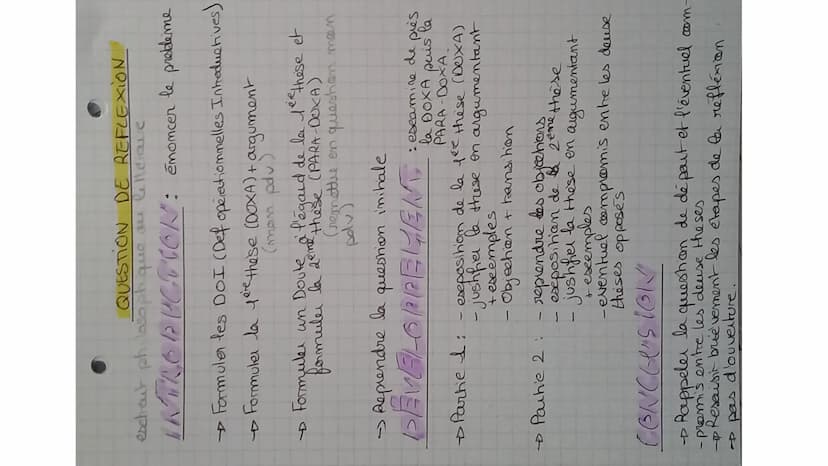 QUESTION DE REFLEXION
extrait philosophique ou littéraire
INTRODUCTION : énoncer le problème
→ Formuler les DOI (Def opérationnelles Introductives)
→ Formuler la 1ère thèse (DOXA) + argument
(mon pdv)
→ Formuler un Doute à l'égard de la 1ère thèse et
formuler la 2ème thèse (PARA-DOXA)
(remettre en question mon
pdv)
→ Reprendre la question initiale
DEVELOPPEMENT : examine de près
la DOXA puis la
PARA-DOXA.
→ Partie 1 : - exposition de la 1ère thèse (DOXA)
- justifier la thèse en argumentant
+ exemples
- Objection + transition
→ Partie 2 : - reprendre les objections
- exposition de la 2ème thèse
- justifier la thèse en argumentant
+ exemples
- eventuel compromis entre les deux
thèses opposés
CONCLUSION
→ Rappeler la question de départ et l'éventuel com-
-promis entre les deux thèses
→ Ressaisir brièvement les étapes de la réflexion
→ pas d'ouverture.